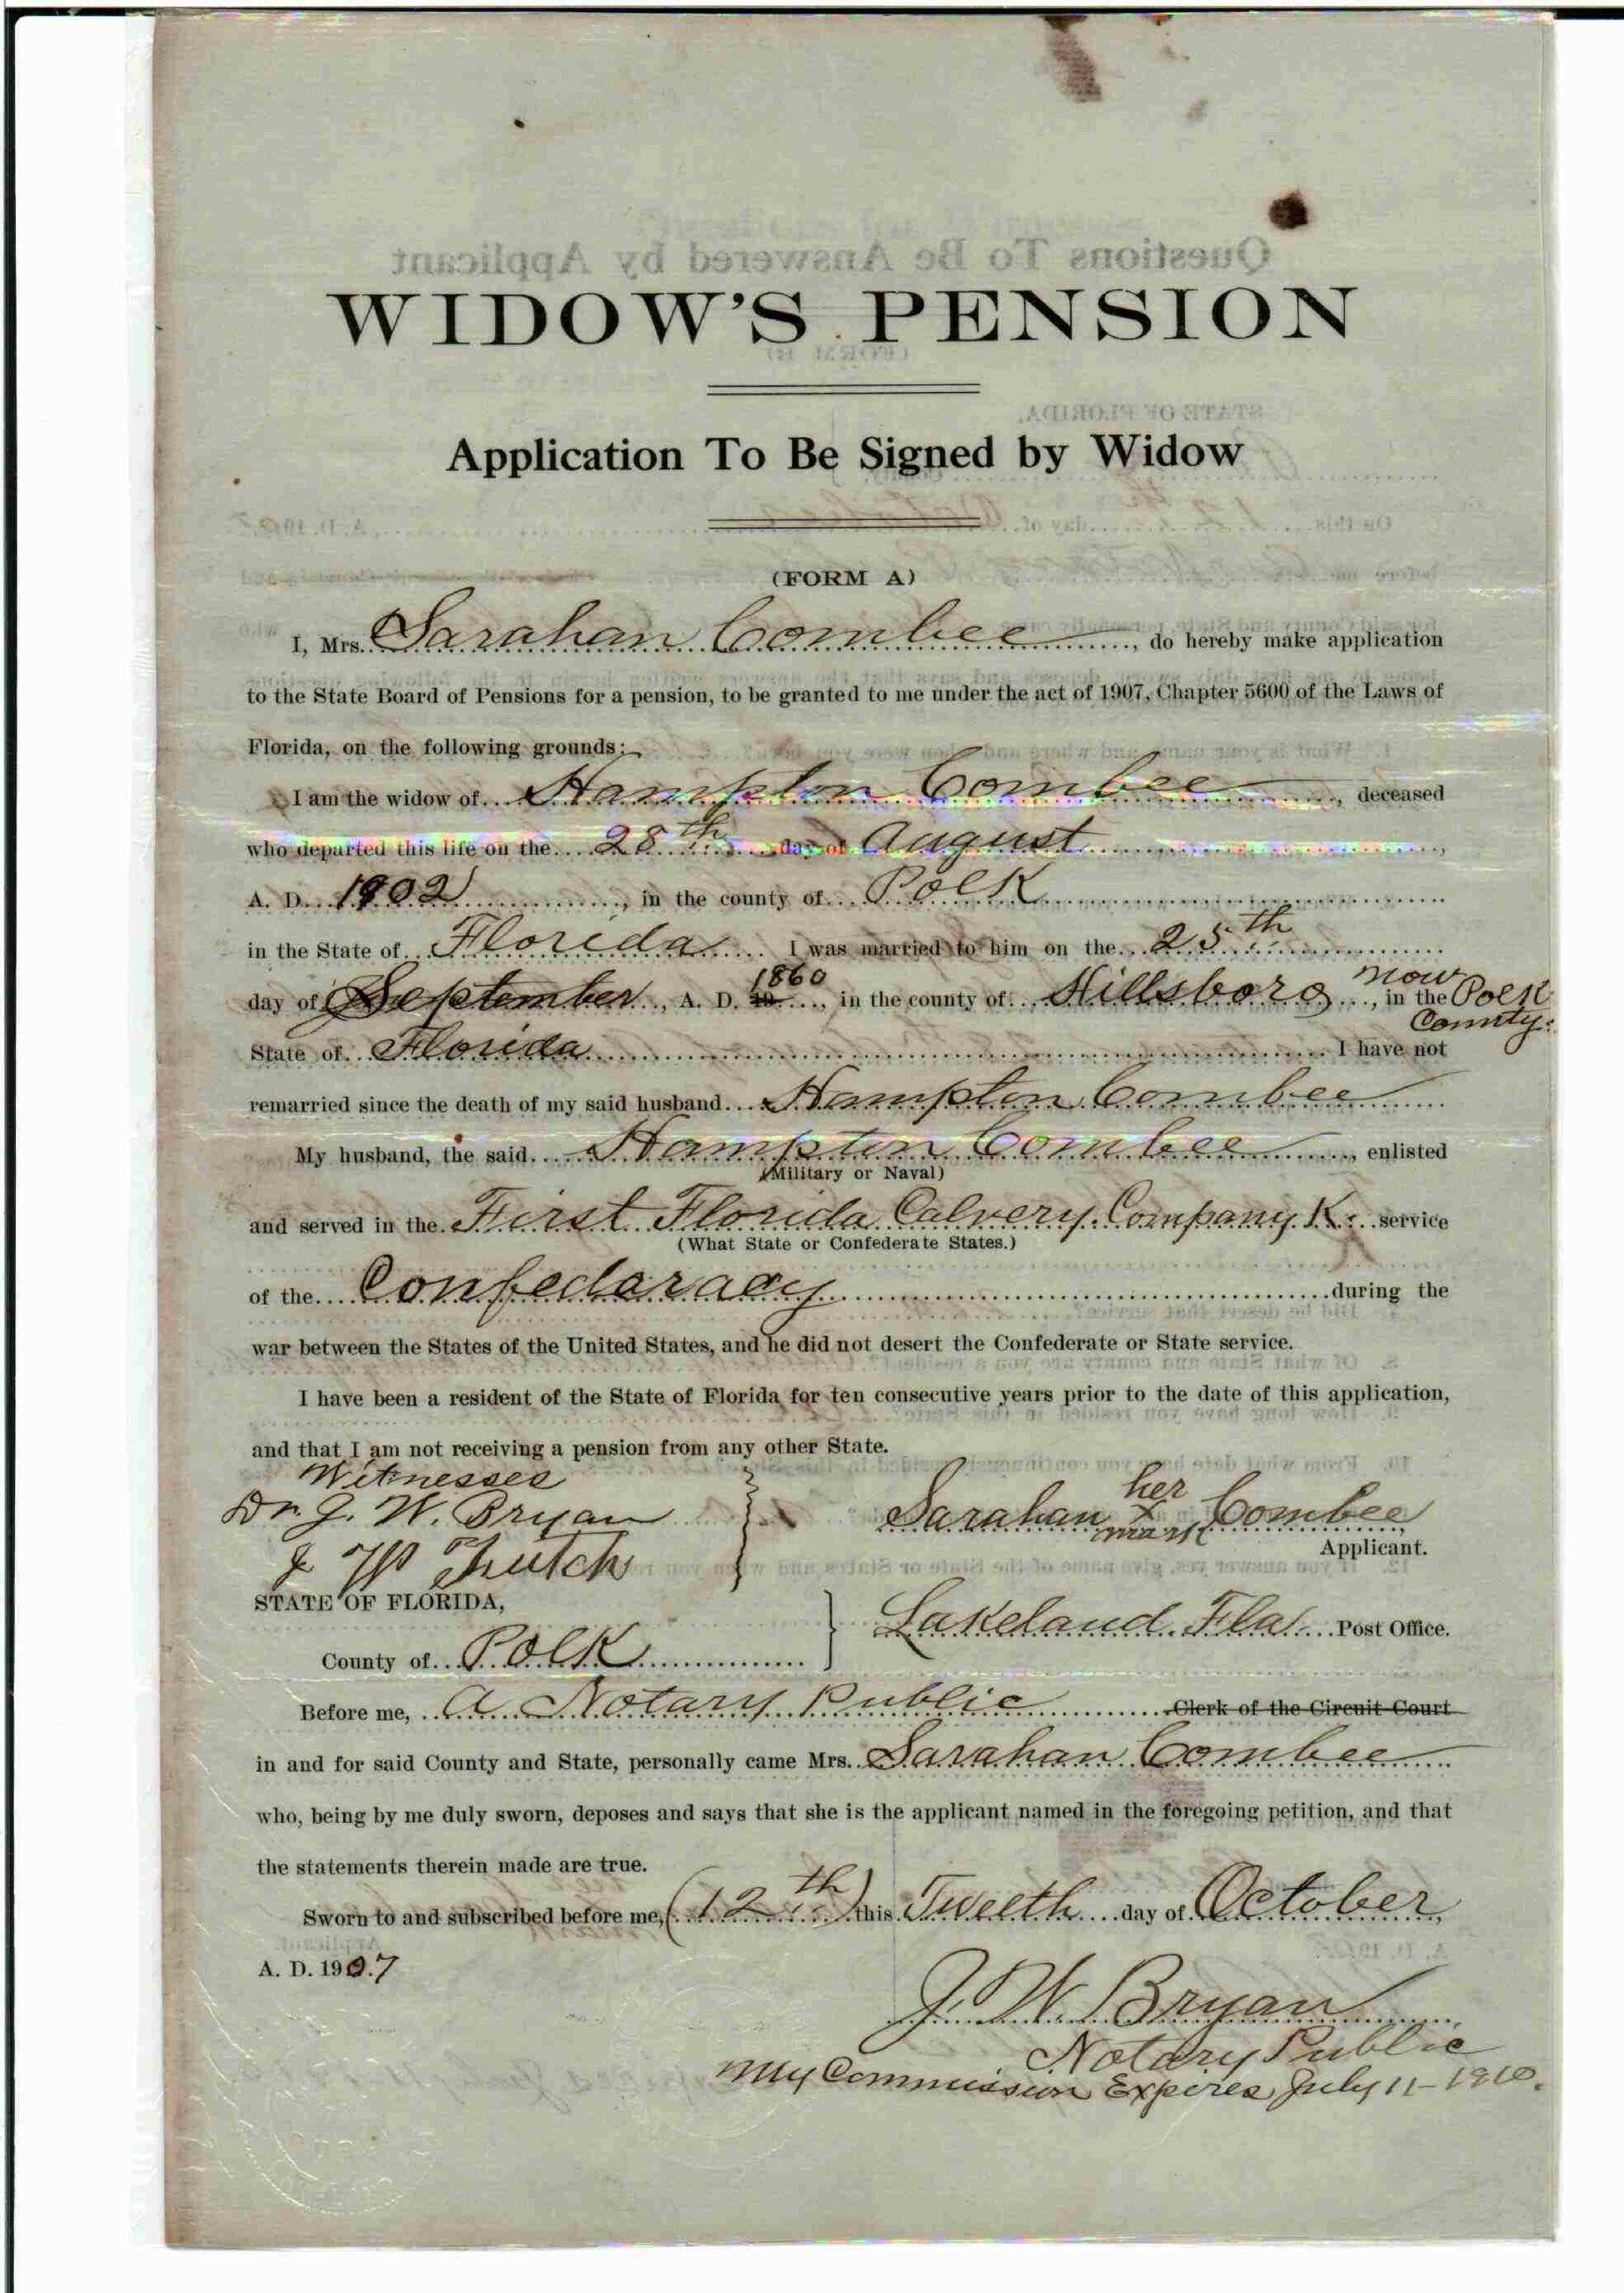 WIDOW'S PENSION
Application To Be Signed by Widow
(FORM A)
I, Mrs. Sarahan Combee, do hereby make application
to the State Board of Pensions for a pension, to be granted to me under the act of 1907, Chapter 5600 of the Laws of
Florida, on the following grounds:
I am the widow of Hampton Combee, deceased
who departed this life on the 28th day of August,
A. D. 1902, in the county of Polk
in the State of Florida I was married to him on the 25th
day of September, A. D. 19 1860, in the county of Hillsboro, now in the Polk County.
State of Florida I have not
remarried since the death of my said husband Hampton Combee
My husband, the said Hampton Combee, enlisted
(Military or Naval)
and served in the First Florida Calvery Company K. service
(What State or Confederate States.)
of the Confederacy during the
war between the States of the United States, and he did not desert the Confederate or State service.
I have been a resident of the State of Florida for ten consecutive years prior to the date of this application,
and that I am not receiving a pension from any other State.
Witnesses
Dr. J. W. Bryan
Sarahan her x mark Combee
Applicant.
STATE OF FLORIDA,
Lakeland Fla Post Office.
County of Polk
Before me, A Notary Public Clerk of the Circuit Court
in and for said County and State, personally came Mrs. Sarahan Combee
who, being by me duly sworn, deposes and says that she is the applicant named in the foregoing petition, and that
the statements therein made are true.
Sworn to and subscribed before me, (12th) this Twelth day of October,
A. D. 1907
J. W. Bryan
Notary Public
My Commission Expires July 11-1910.